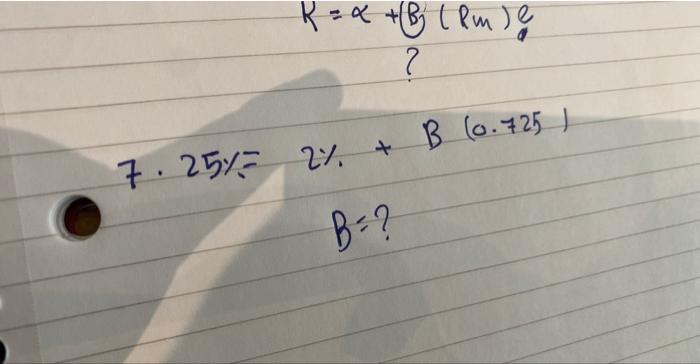 R = α + B (Rm) e
?
7.25%= 2% + B (0.725)
B=?